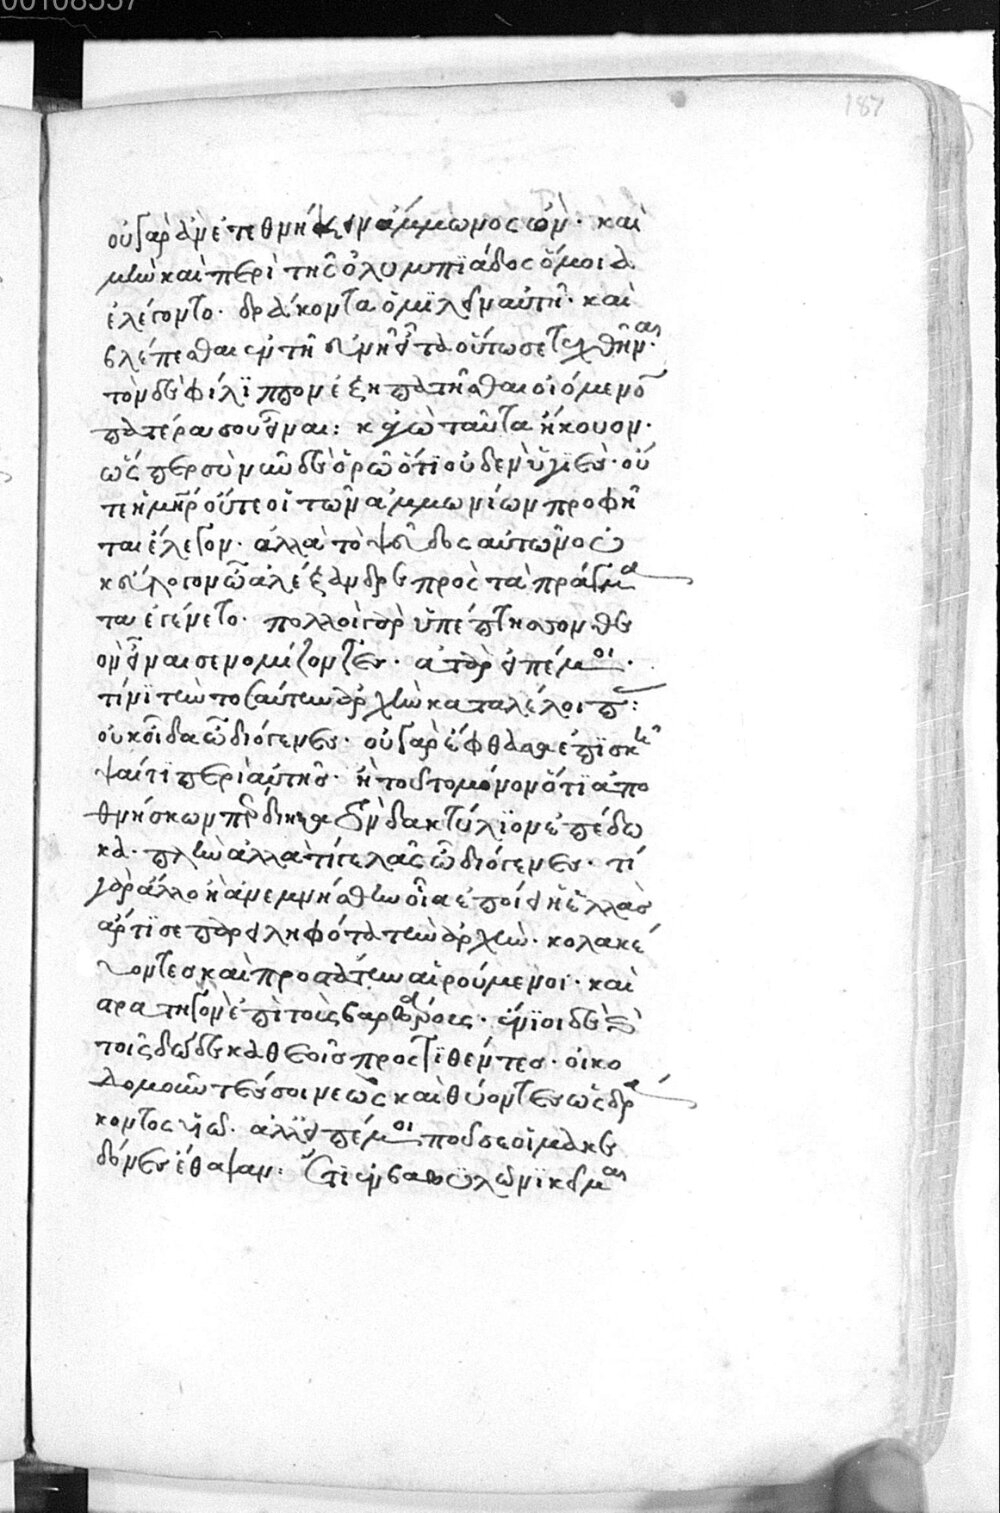 187
οὐ γὰρ ἂν ἐτεθνήκεις ἄμμωνος ὤν· καὶ
μὴν καὶ περὶ τῆς ὀλυμπϊάδος ὅμοια
ἐλέγοντο· δράκοντα ὁμϊλεῖν αὐτῆ· καὶ
βλέπεσθαι ἐν τῆ εὐνῆ εἶτα οὕτω σε τεχθῆναι·
τὸν δὲ φίλϊππον ἐξηπατῆσθαι οἰόμενον
πατέρα σου εἶναι: κἀγὼ ταῦτα ἤκουον·
ὥσπερ σὺ νῦν δὲ ὁρῶ ὅτϊ οὐδὲν ὑγιὲς· οὔ
τε ἡ μήτηρ οὔτε οἱ τῶν ἀμμωνίων προφῆ
ται ἔλεγον· ἀλλὰ τὸ ψεῦδος αὐτῶν οὐ
κ ἄχρηστόν σοι ὦ ἀλέξανδρε πρὸς τὰ πράγμα
τα ἐγένετο· πολλοὶ γὰρ ὑπέπτησσον θε
ὸν εἶναί σε νομίζοντες· ἀτὰρ εἰπέ μοι·
τίνϊ τὴν τοσαύτην ἀρχὴν καταλέλοιπας:
οὐκ οἶδα ὦ διόγενες· οὐ γὰρ ἔφθασα ἐπϊσκῆ
ψαί τϊ περὶ αὐτῆς· ἢ τοῦτο μόνον ὅτϊ ἀπο
θνήσκων περδίκκα τὸν δακτύλϊον ἐπέδω
κα· πλὴν ἀλλὰ τί γελᾶς ὦ διόγενες· τί
γὰρ ἄλλο ἢ ἀνεμνήσθην οἷα ἐποίει ἡ ἑλλὰς
ἄρτϊ σε παρειληφότα τὴν ἀρχὴν· κολακεύ
οντες καὶ προστάτην αἱρούμενοι· καὶ
στρατηγὸν ἐπὶ τοὺς βαρβάρους· ἔνϊοι δὲ καὶ
τοῖς δώδεκα θεοῖς προστϊθέντες· οἰκο
δομοῦντές σοι νεὼς καὶ θύοντες ὡς δρά
κοντος υἱῶ· ἀλλ' εἰπέ μοι ποῦ σε οἱ μακε
δόνες ἔθαψαν: ἔτϊ ἐν βαβυλῶνϊ κεῖμαι